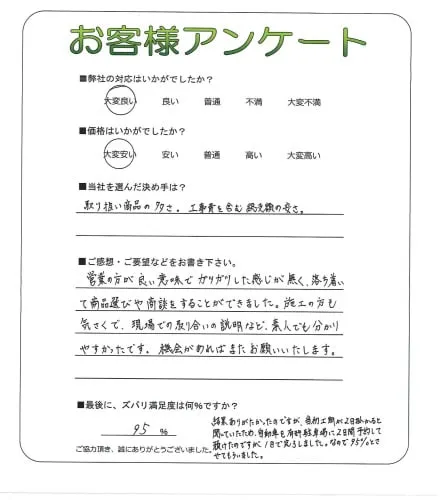 お客様アンケート
■弊社の対応はいかがでしたか?
大変良い 良い 普通 不満 大変不満
■価格はいかがでしたか?
大変安い 安い 普通 高い 大変高い
■当社を選んだ決め手は?
取り扱い商品の多さ。工事費を含む総支額の安さ。
■ご感想・ご要望などをお書き下さい。
営業の方が良い意味でガリガリした感じが無く、落ち着い
て商品選びや商談をすることができました。施工の方も
気さくで、現場での取り合いの説明など、素人でも分かり
やすかったです。機会があればまたお願いいたします。
■最後に、ズバリ満足度は何%ですか?
95 %
結果ありがたかったのですが、当初工期が2日掛かると
聞いていたため、自動車を有料駐車場に2日間予約して
頂けたのですが1日で完了しました。なので95%とさ
せてもらいました。
ご協力頂き、誠にありがとうございました。